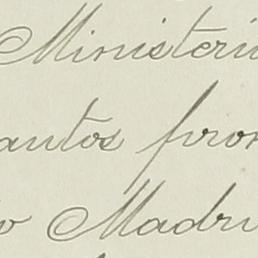 Ministeri
antos pron
o Madri